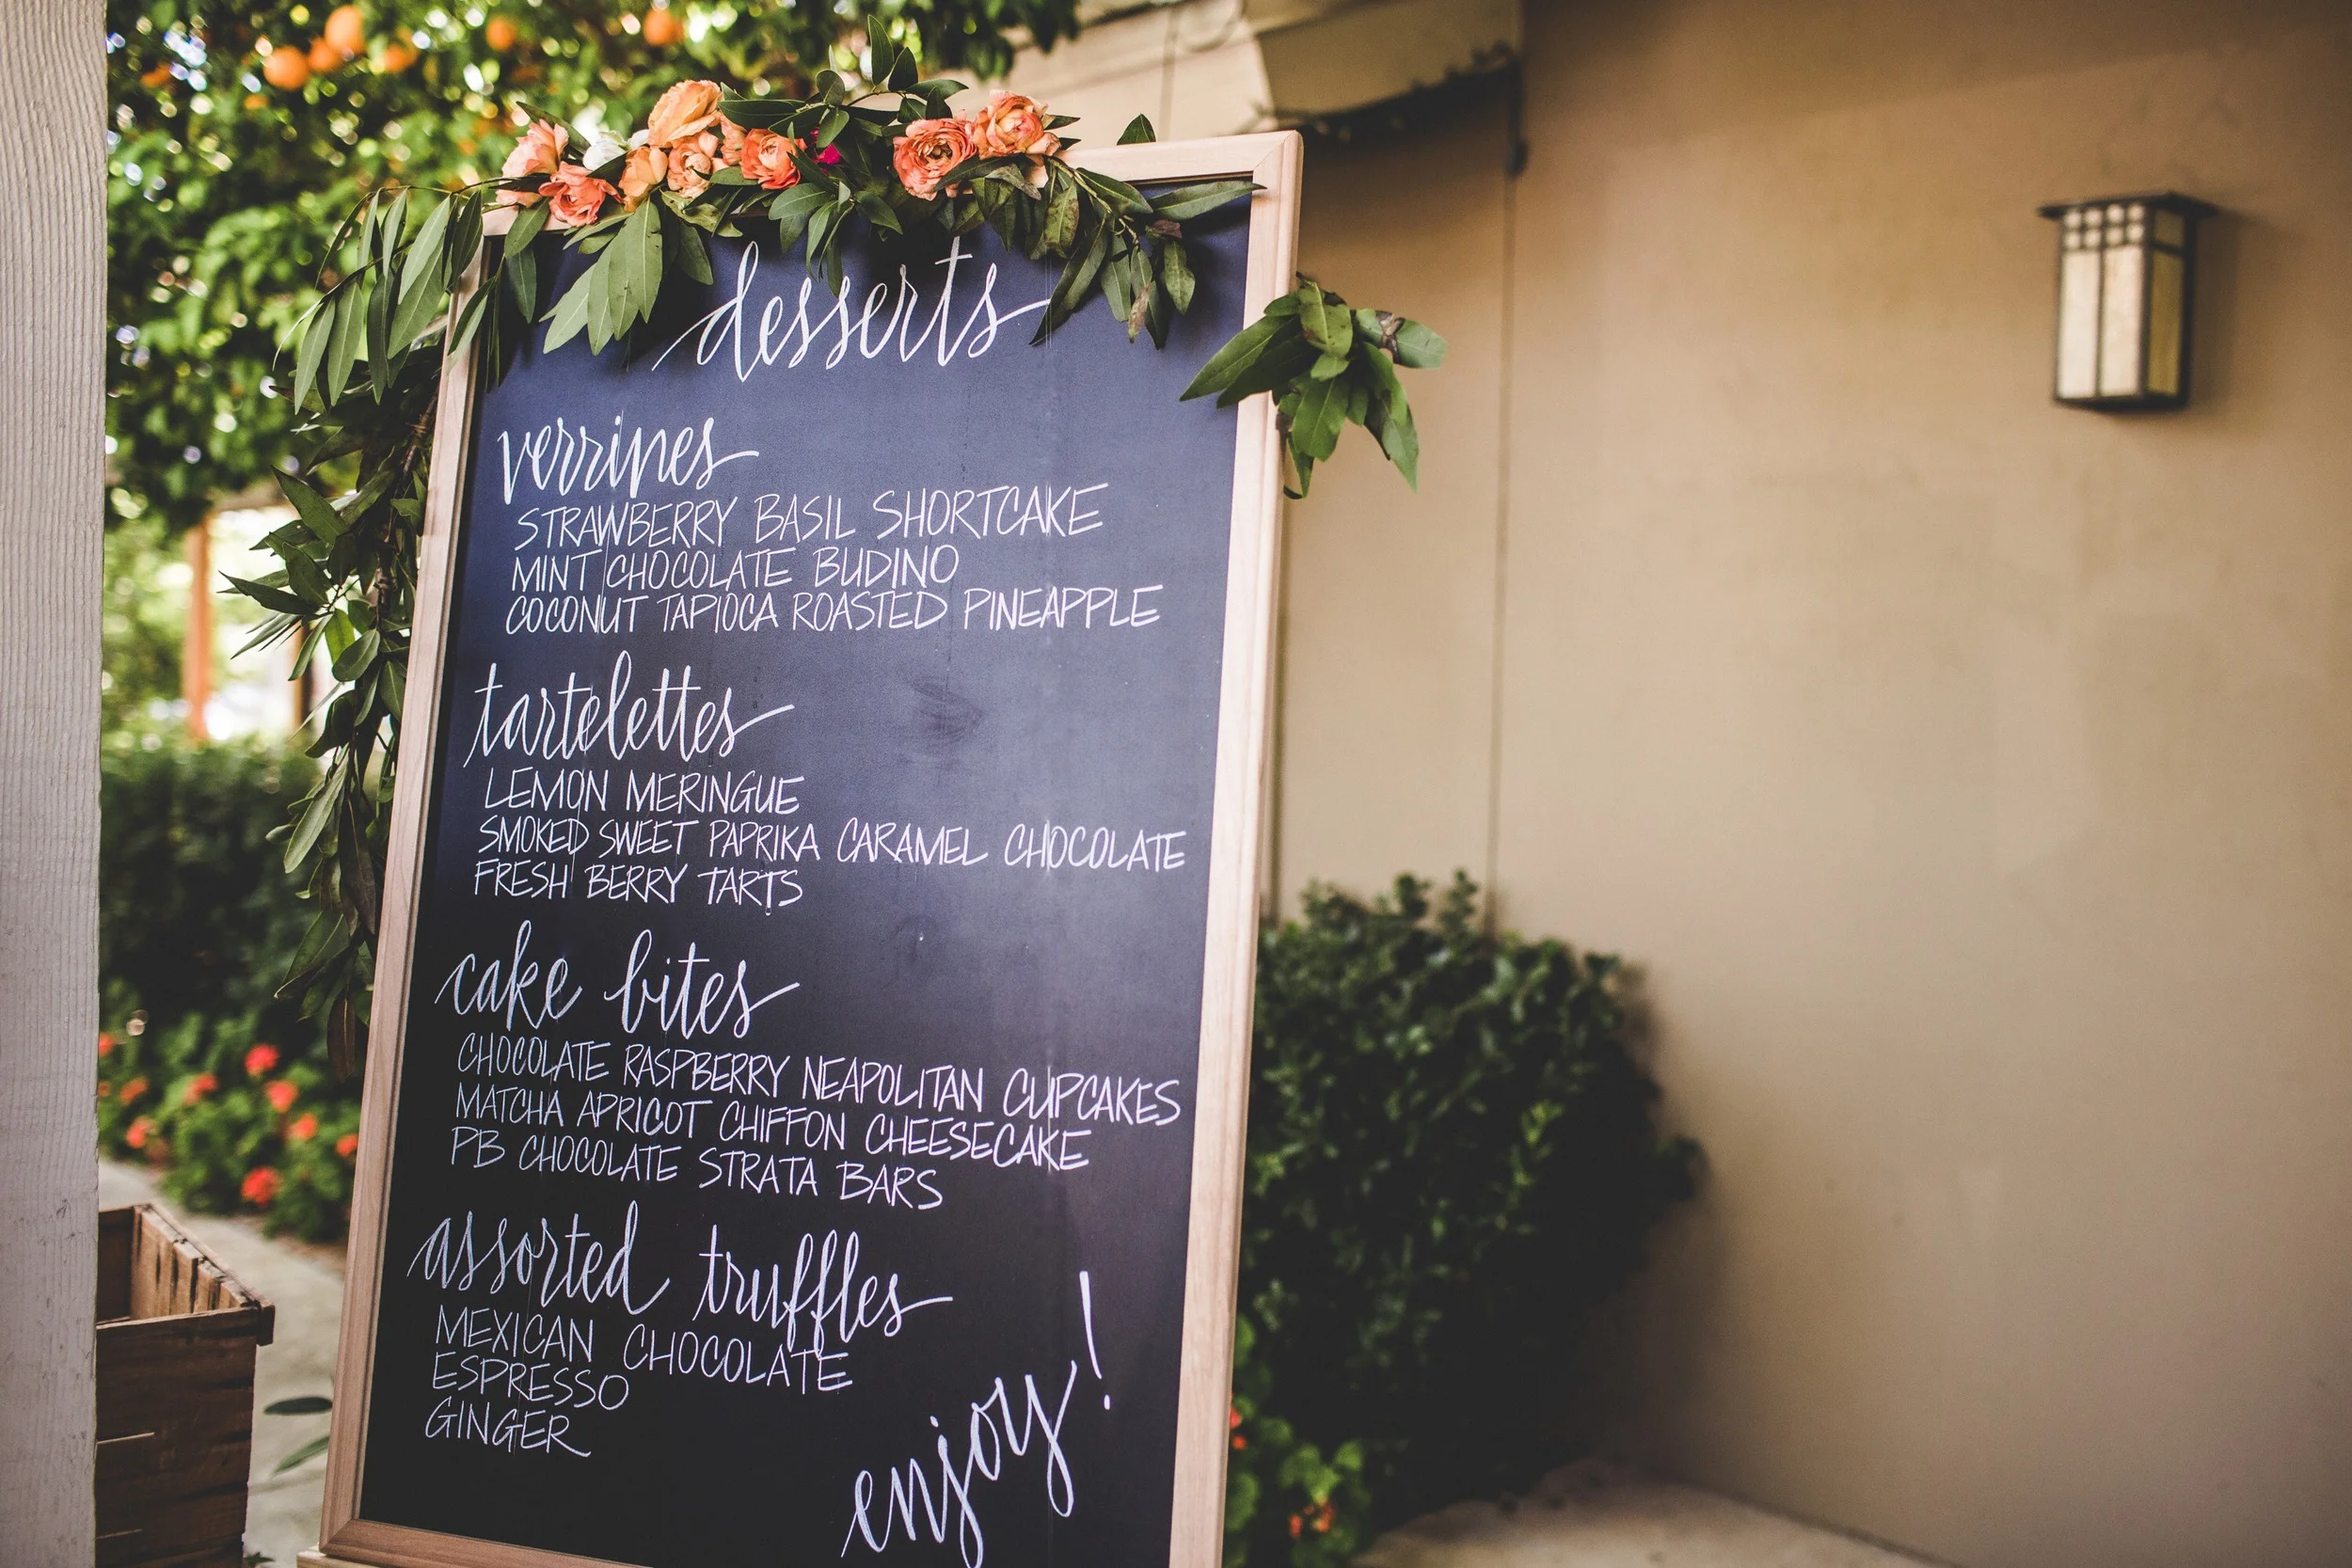 desserts
verrines
STRAWBERRY BASIL SHORTCAKE
MINT CHOCOLATE BUDINO
COCONUT TAPIOCA ROASTED PINEAPPLE
tartelettes
LEMON MERINGUE
SMOKED SWEET PAPRIKA CARAMEL CHOCOLATE
FRESH BERRY TARTS
cake bites
CHOCOLATE RASPBERRY NEAPOLITAN CUPCAKES
MATCHA APRICOT CHIFFON CHEESECAKE
PB CHOCOLATE STRATA BARS
assorted truffles
MEXICAN CHOCOLATE
ESPRESSO
GINGER
enjoy!